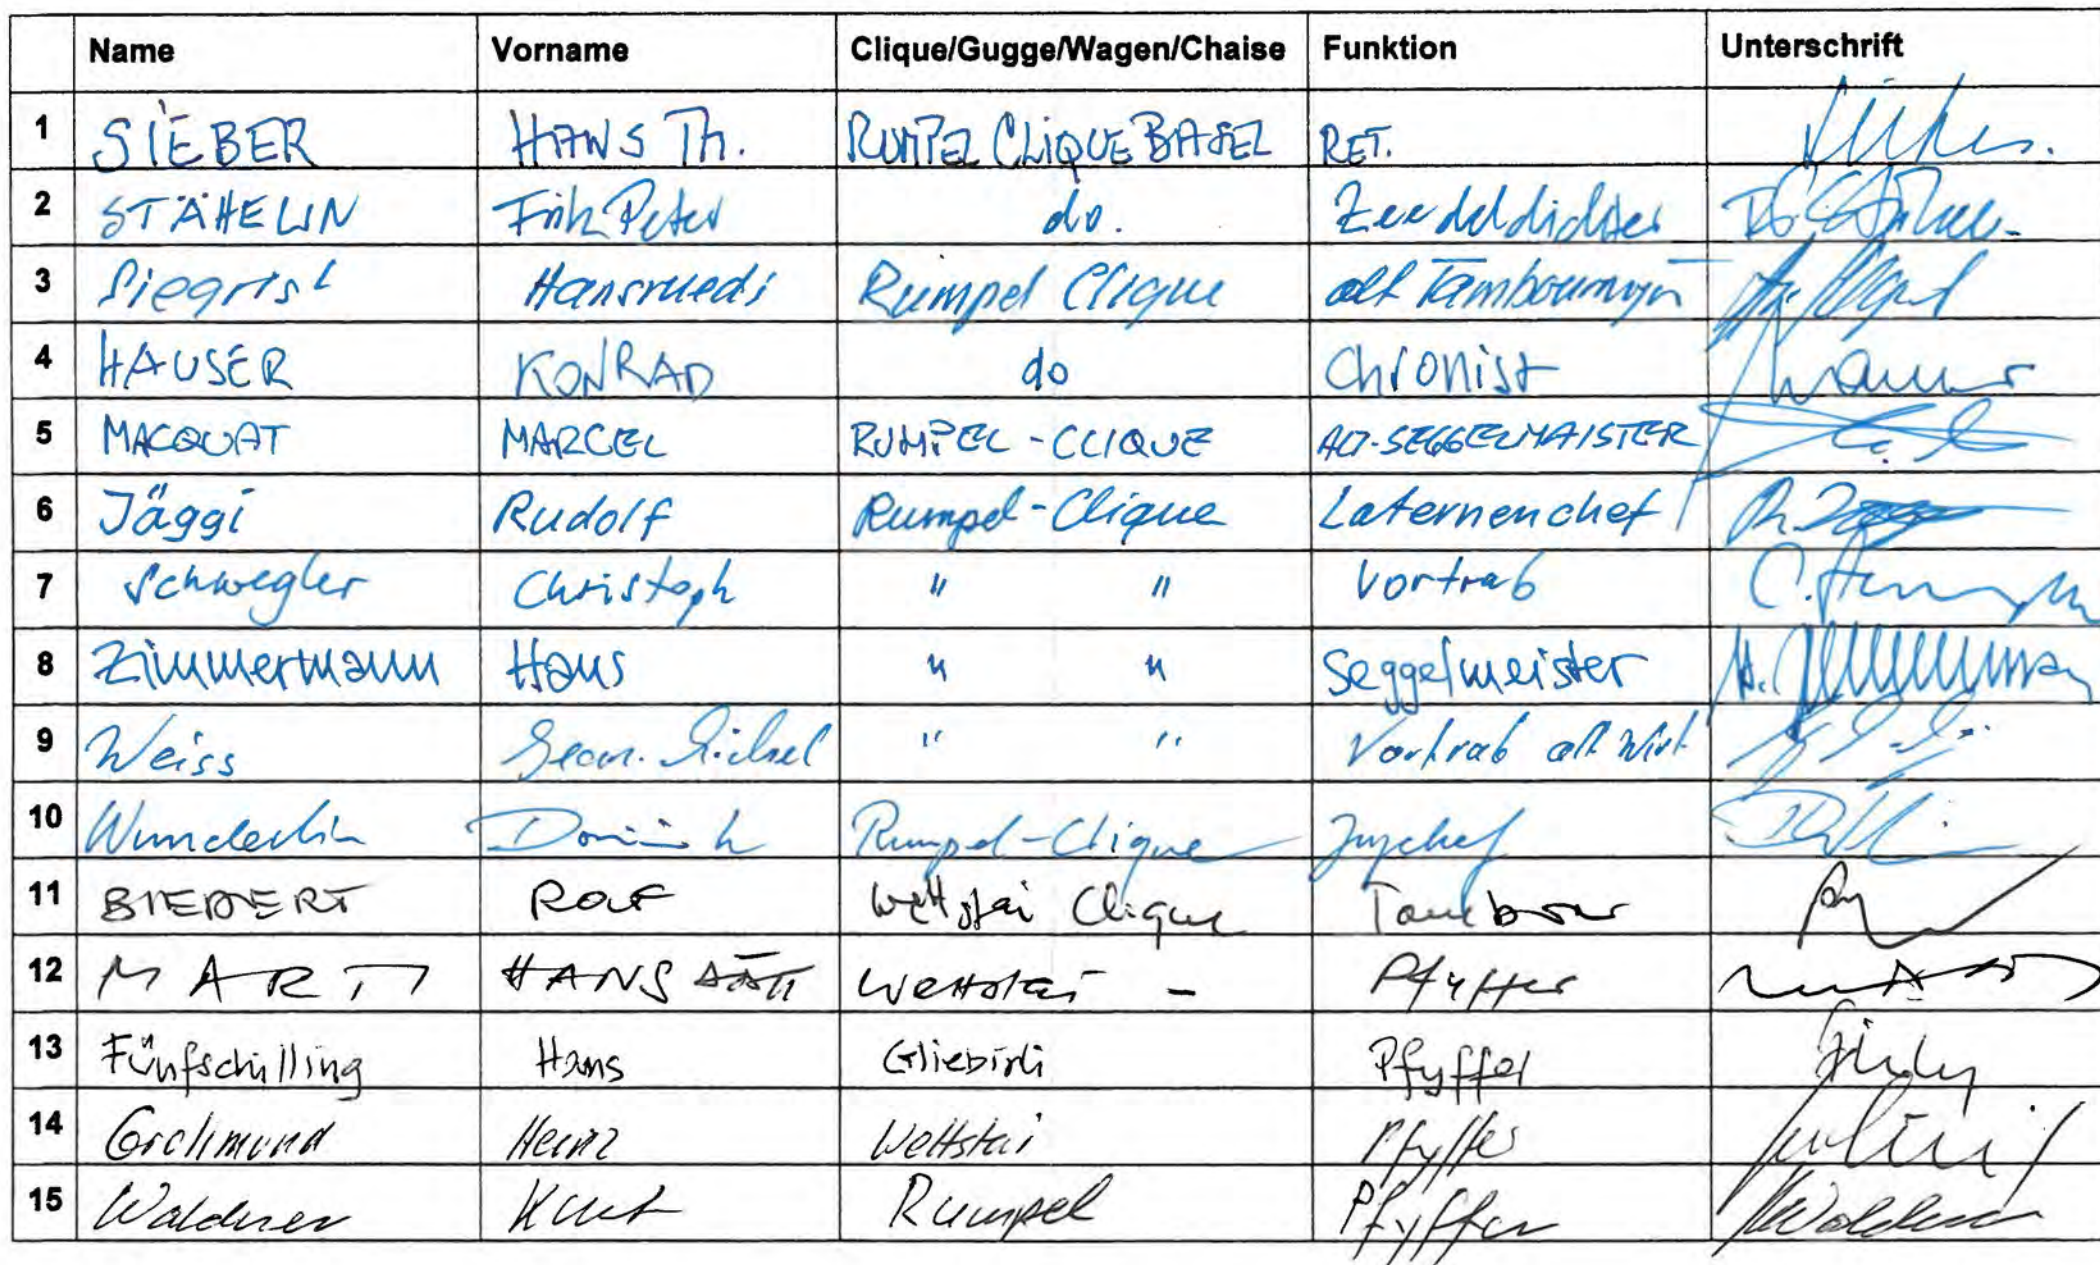 Name Vorname Clique/Gugge/Wagen/Chaise Funktion Unterschrift
1 SIEBER HANS Th. RUMPEL CLIQUE BASEL RET.
2 STÄHELIN Fritz Peter do. Zeedeldichter
3 Siegrist Hansruedi Rumpel Clique alt Tambourmajor
4 HAUSER KONRAD do Chronist
5 MACQUAT MARCEL RUMPEL-CLIQUE ALT-SEGGELMAISTER
6 Jäggi Rudolf Rumpel-Clique Laternenchef
7 Schwegler Christoph " " Vortrab
8 Zimmermann Hans " " Seggelmeister
9 Weiss " " Vortrab alt Wirt
10 Wunderlin Dominik Rumpel-Clique Zugchef
11 BIEDERT ROLF Wettstai Clique Tambour
12 MARTI HANS Wettstai - Pfyffer
13 Fünfschilling Hans Gliebirli Pfyffer
14 Grollimund Heinz Wettstai Pfyffer
15 Waldner Kurt Rumpel Pfyffer